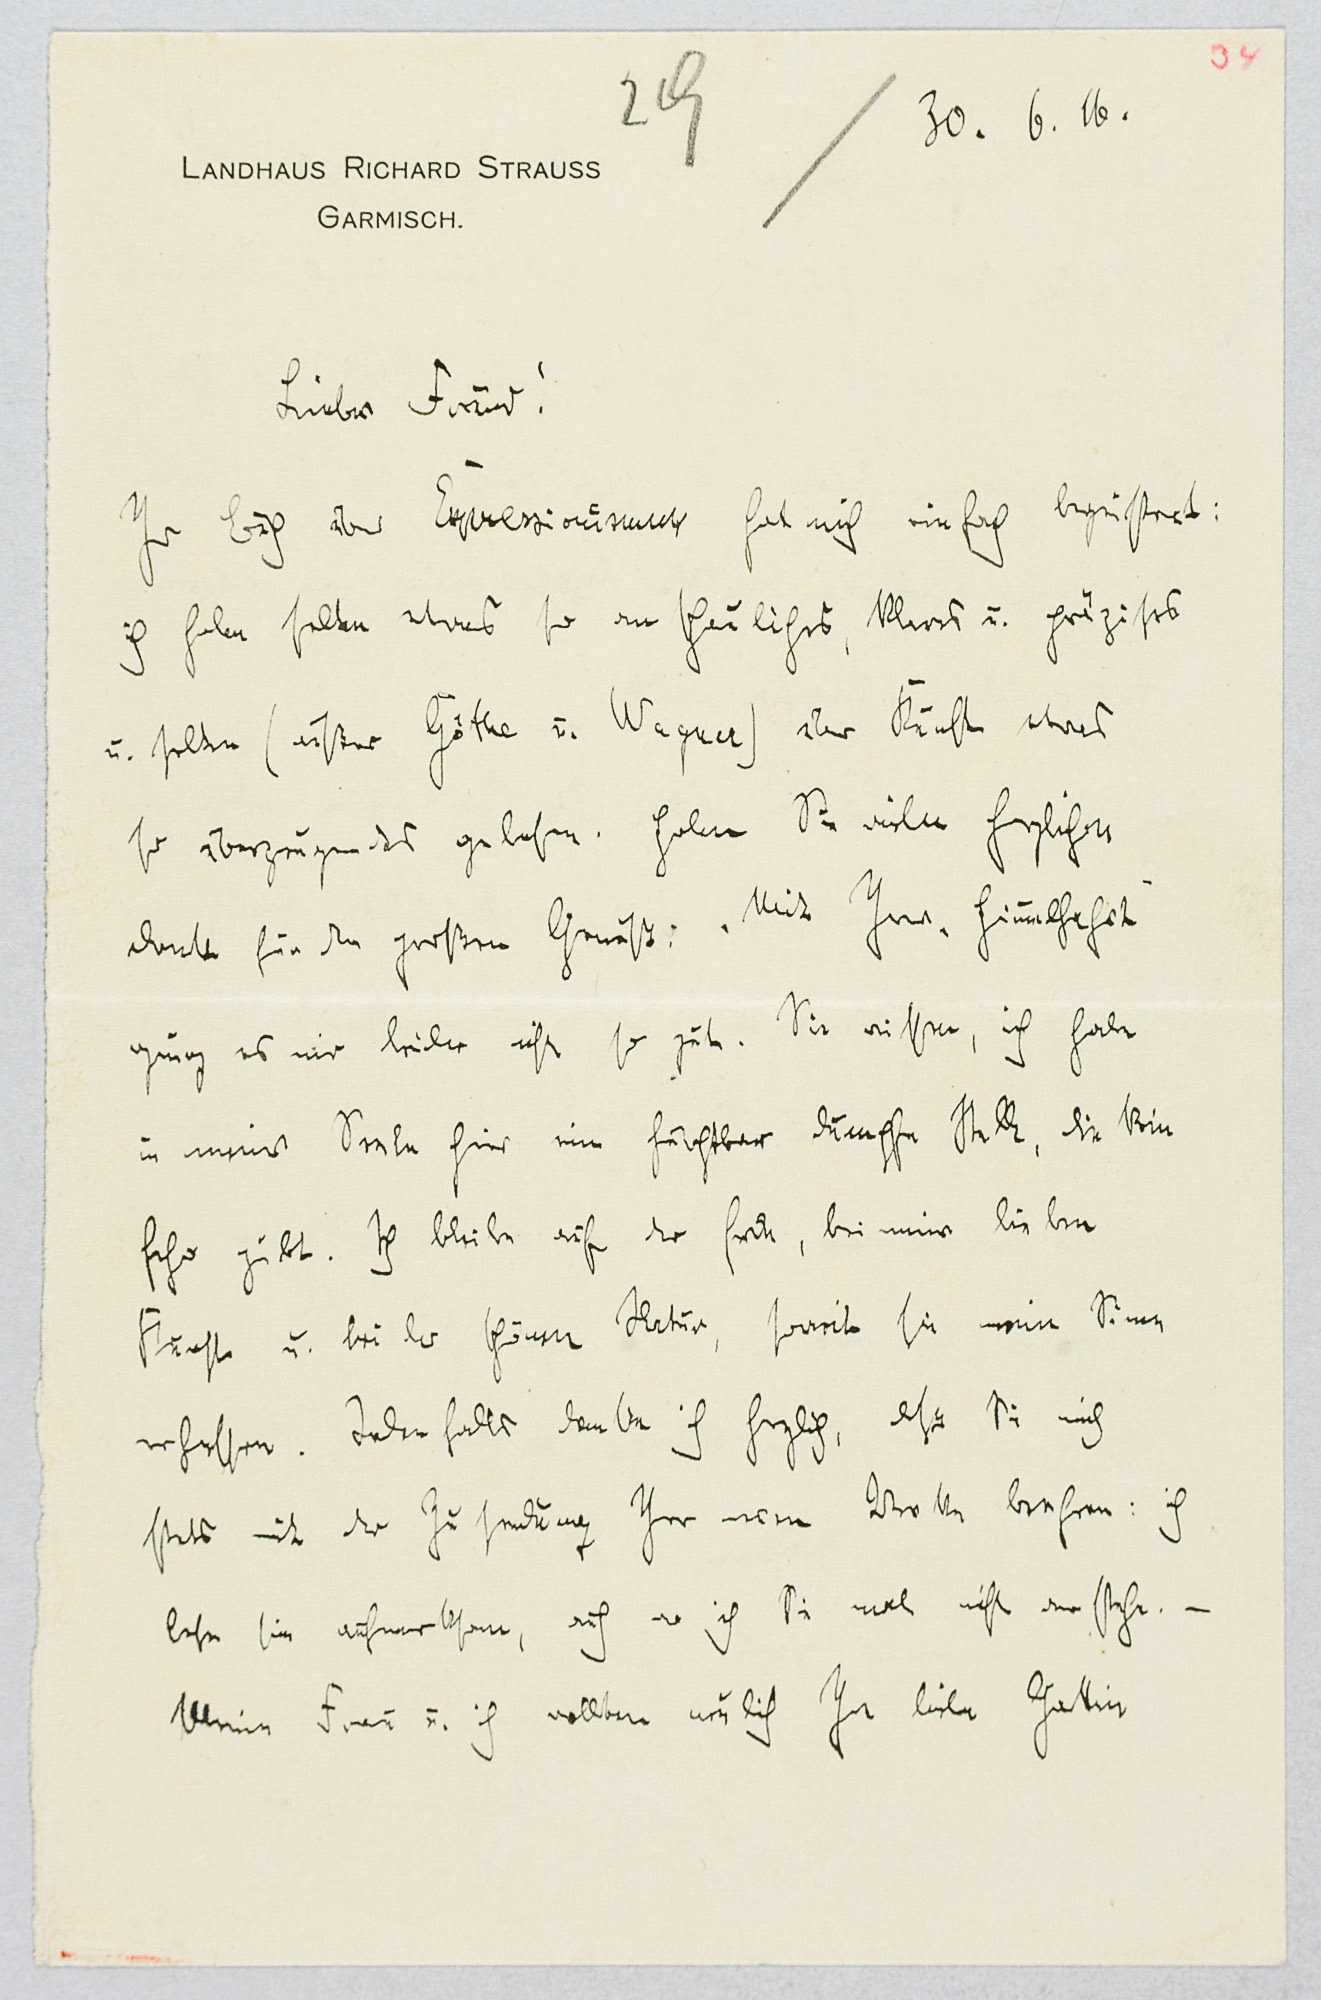 34
29
30. 6. 16.
LANDHAUS RICHARD STRAUSS
GARMISCH.
Lieber Freund!
Ihr Buch über Expressionismus hat mich einfach begeistert:
ich habe selten etwas so anschauliches, klares u. präzises
u. selten (außer Göthe u. Wagner) über Kunst etwas
so überzeugendes gelesen. Haben Sie vielen herzlichen
Dank für den großen Genuß: Mit Ihrer „Himmelfahrt“
ging es mir leider nicht so gut. Sie wissen, ich habe
in meiner Seele hier eine furchtbar dumpfe Stelle, die kein
Echo gibt. Ich bleibe auf der Erde, bei meiner lieben
Kunst u. bei der schönen Natur, soweit sie meine Sinne
erfassen. Jedenfalls danke ich herzlich, daß Sie mich
stets mit der Zusendung Ihrer neuen Werke beehren: ich
lese sie aufmerksam, auch wo ich Sie mal nicht verstehe. –
Meine Frau u. ich wollten neulich Ihre liebe Gattin